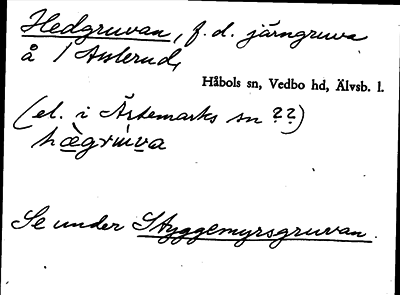 Hedgruvan, f. d. järngruva
å 1 Asslerud,
Håbols sn, Vedbo hd, Älvsb. l.
(el. i Ärtemarks sn ??)
hǽgru̇va
Se under Styggemyrsgruvan.